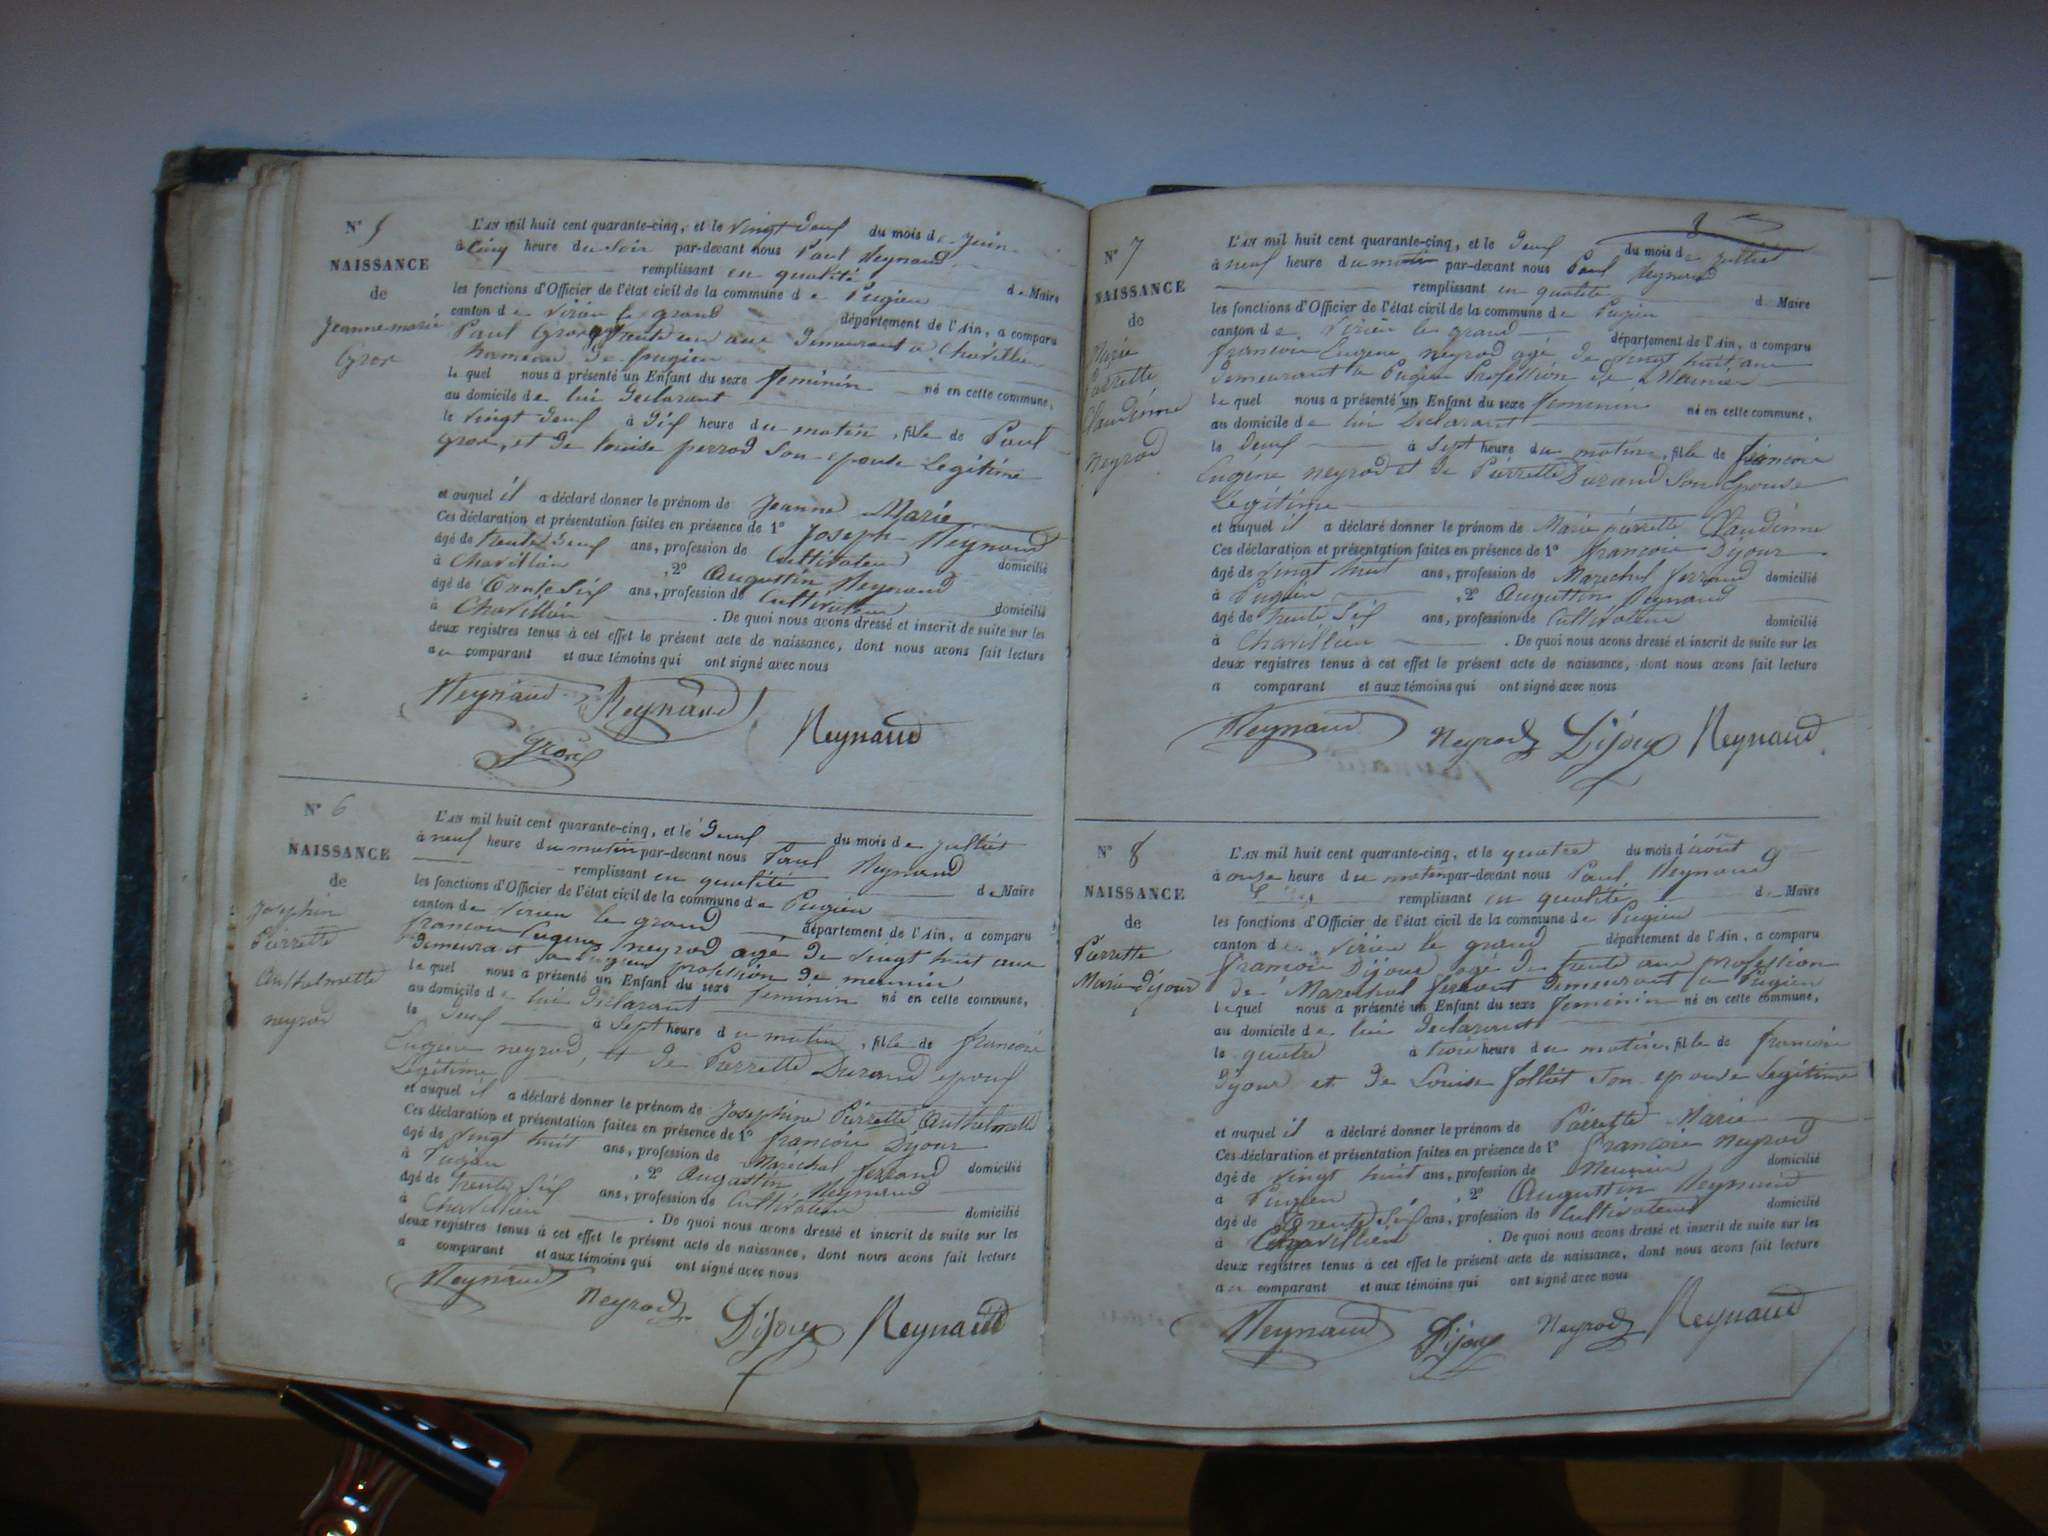 N° 5
NAISSANCE
de
Jeanne marie
Gros
L'AN mil huit cent quarante-cinq, et le vingt deux du mois de juin
à cinq heure du soir par-devant nous Paul Reynaud
remplissant en qualité de Maire
les fonctions d'Officier de l'état civil de la commune de Pugieu
canton de Virieu le grand département de l'Ain, a comparu
Paul Gros trente un ans demeurant a Chavillieu
hameau de pugieu
lequel nous a présenté un Enfant du sexe feminin né en cette commune,
au domicile de lui declarant
le vingt deux à dix heure du matin, fille de Paul
gros, et de louise perrod son epouse Legitime
et auquel il a déclaré donner le prénom de Jeanne Marie
Ces déclaration et présentation faites en présence de 1° Joseph Reynaud
âgé de trente deux ans, profession de Cultivateur domicilié
à Chavillieu, 2° Augustin Reynaud
âgé de Trente Six ans, profession de Cultivateur domicilié
à Chavillieu. De quoi nous avons dressé et inscrit de suite sur les
deux registres tenus à cet effet le présent acte de naissance, dont nous avons fait lecture
au comparant et aux témoins qui ont signé avec nous
Reynaud Reynaud Reynaud
gros
N° 6
NAISSANCE
de
Josephin
Pierrette
Anthelmette
neyrod
L'AN mil huit cent quarante-cinq, et le deux du mois de juillet
à neuf heure du matin par-devant nous Paul Reynaud
remplissant en qualité de Maire
les fonctions d'Officier de l'état civil de la commune de Pugieu
canton de Virieu le grand département de l'Ain, a comparu
francois Eugene neyrod agé de vingt huit ans
demeurant a Pugieu profession de meunier
lequel nous a présenté un Enfant du sexe feminin né en cette commune,
au domicile de lui declarant
le deux à Sept heure du matin, fille de francois
Eugene neyrod, et de Pierrette Durand epouse
Légitime
et auquel il a déclaré donner le prénom de Josephine Pierrette Anthelmette
Ces déclaration et présentation faites en présence de 1° francois Dijoux
âgé de vingt huit ans, profession de Maréchal ferrand domicilié
à Pugieu, 2° Augustin Reynaud
âgé de trente Six ans, profession de Cultivateur domicilié
à Chavillieu. De quoi nous avons dressé et inscrit de suite sur les
deux registres tenus à cet effet le présent acte de naissance, dont nous avons fait lecture
a comparant et aux témoins qui ont signé avec nous
Reynaud Neyrod Dijoux Reynaud
N° 7
NAISSANCE
de
Marie
Pierrette
Claudinne
neyrod
L'AN mil huit cent quarante-cinq, et le deux du mois de juillet
à neuf heure du matin par-devant nous Paul Reynaud
remplissant en qualité de Maire
les fonctions d'Officier de l'état civil de la commune de Pugieu
canton de Virieu le grand département de l'Ain, a comparu
francois Eugene neyrod agé de vingt huit ans
demeurant a Pugieu Profession de Meunier
lequel nous a présenté un Enfant du sexe feminin né en cette commune,
au domicile de lui Declarant
le deux à sept heure du matin, fille de francois
Eugene neyrod et de Pierrette Durand Son Epouse
Legitime
et auquel il a déclaré donner le prénom de Marie pierrette Claudinne
Ces déclaration et présentation faites en présence de 1° francois Dijoux
âgé de vingt huit ans, profession de Marechal ferrand domicilié
à Pugieu, 2° Augustin Reynaud
âgé de trente Six ans, profession de Cultivateur domicilié
à Chavillieu. De quoi nous avons dressé et inscrit de suite sur les
deux registres tenus à cet effet le présent acte de naissance, dont nous avons fait lecture
a comparant et aux témoins qui ont signé avec nous
Reynaud Neyrod Dijoux Reynaud
N° 8
NAISSANCE
de
Pierrette
Marie Dijoux
L'AN mil huit cent quarante-cinq, et le quatre du mois d'août
à onse heure du matin par-devant nous Paul Reynaud
remplissant en qualité de Maire
les fonctions d'Officier de l'état civil de la commune de Pugieu
canton de Virieu le grand département de l'Ain, a comparu
francois Dijoux agé de trente ans profession
de Marechal ferrant demeurant a Pugieu
lequel nous a présenté un Enfant du sexe feminin né en cette commune,
au domicile de lui declarant
le quatre à trois heure du matin, fille de francois
Dijoux et de Louise Jolliet son epouse Legitime
et auquel il a déclaré donner le prénom de Pierrette Marie
Ces déclaration et présentation faites en présence de 1° francois neyrod
âgé de vingt huit ans, profession de Meunier domicilié
à Pugieu, 2° Augustin Reynaud
âgé de Trente Six ans, profession de Cultivateur domicilié
à Chavillieu. De quoi nous avons dressé et inscrit de suite sur les
deux registres tenus à cet effet le présent acte de naissance, dont nous avons fait lecture
au comparant et aux témoins qui ont signé avec nous
Reynaud Dijoux Neyrod Reynaud